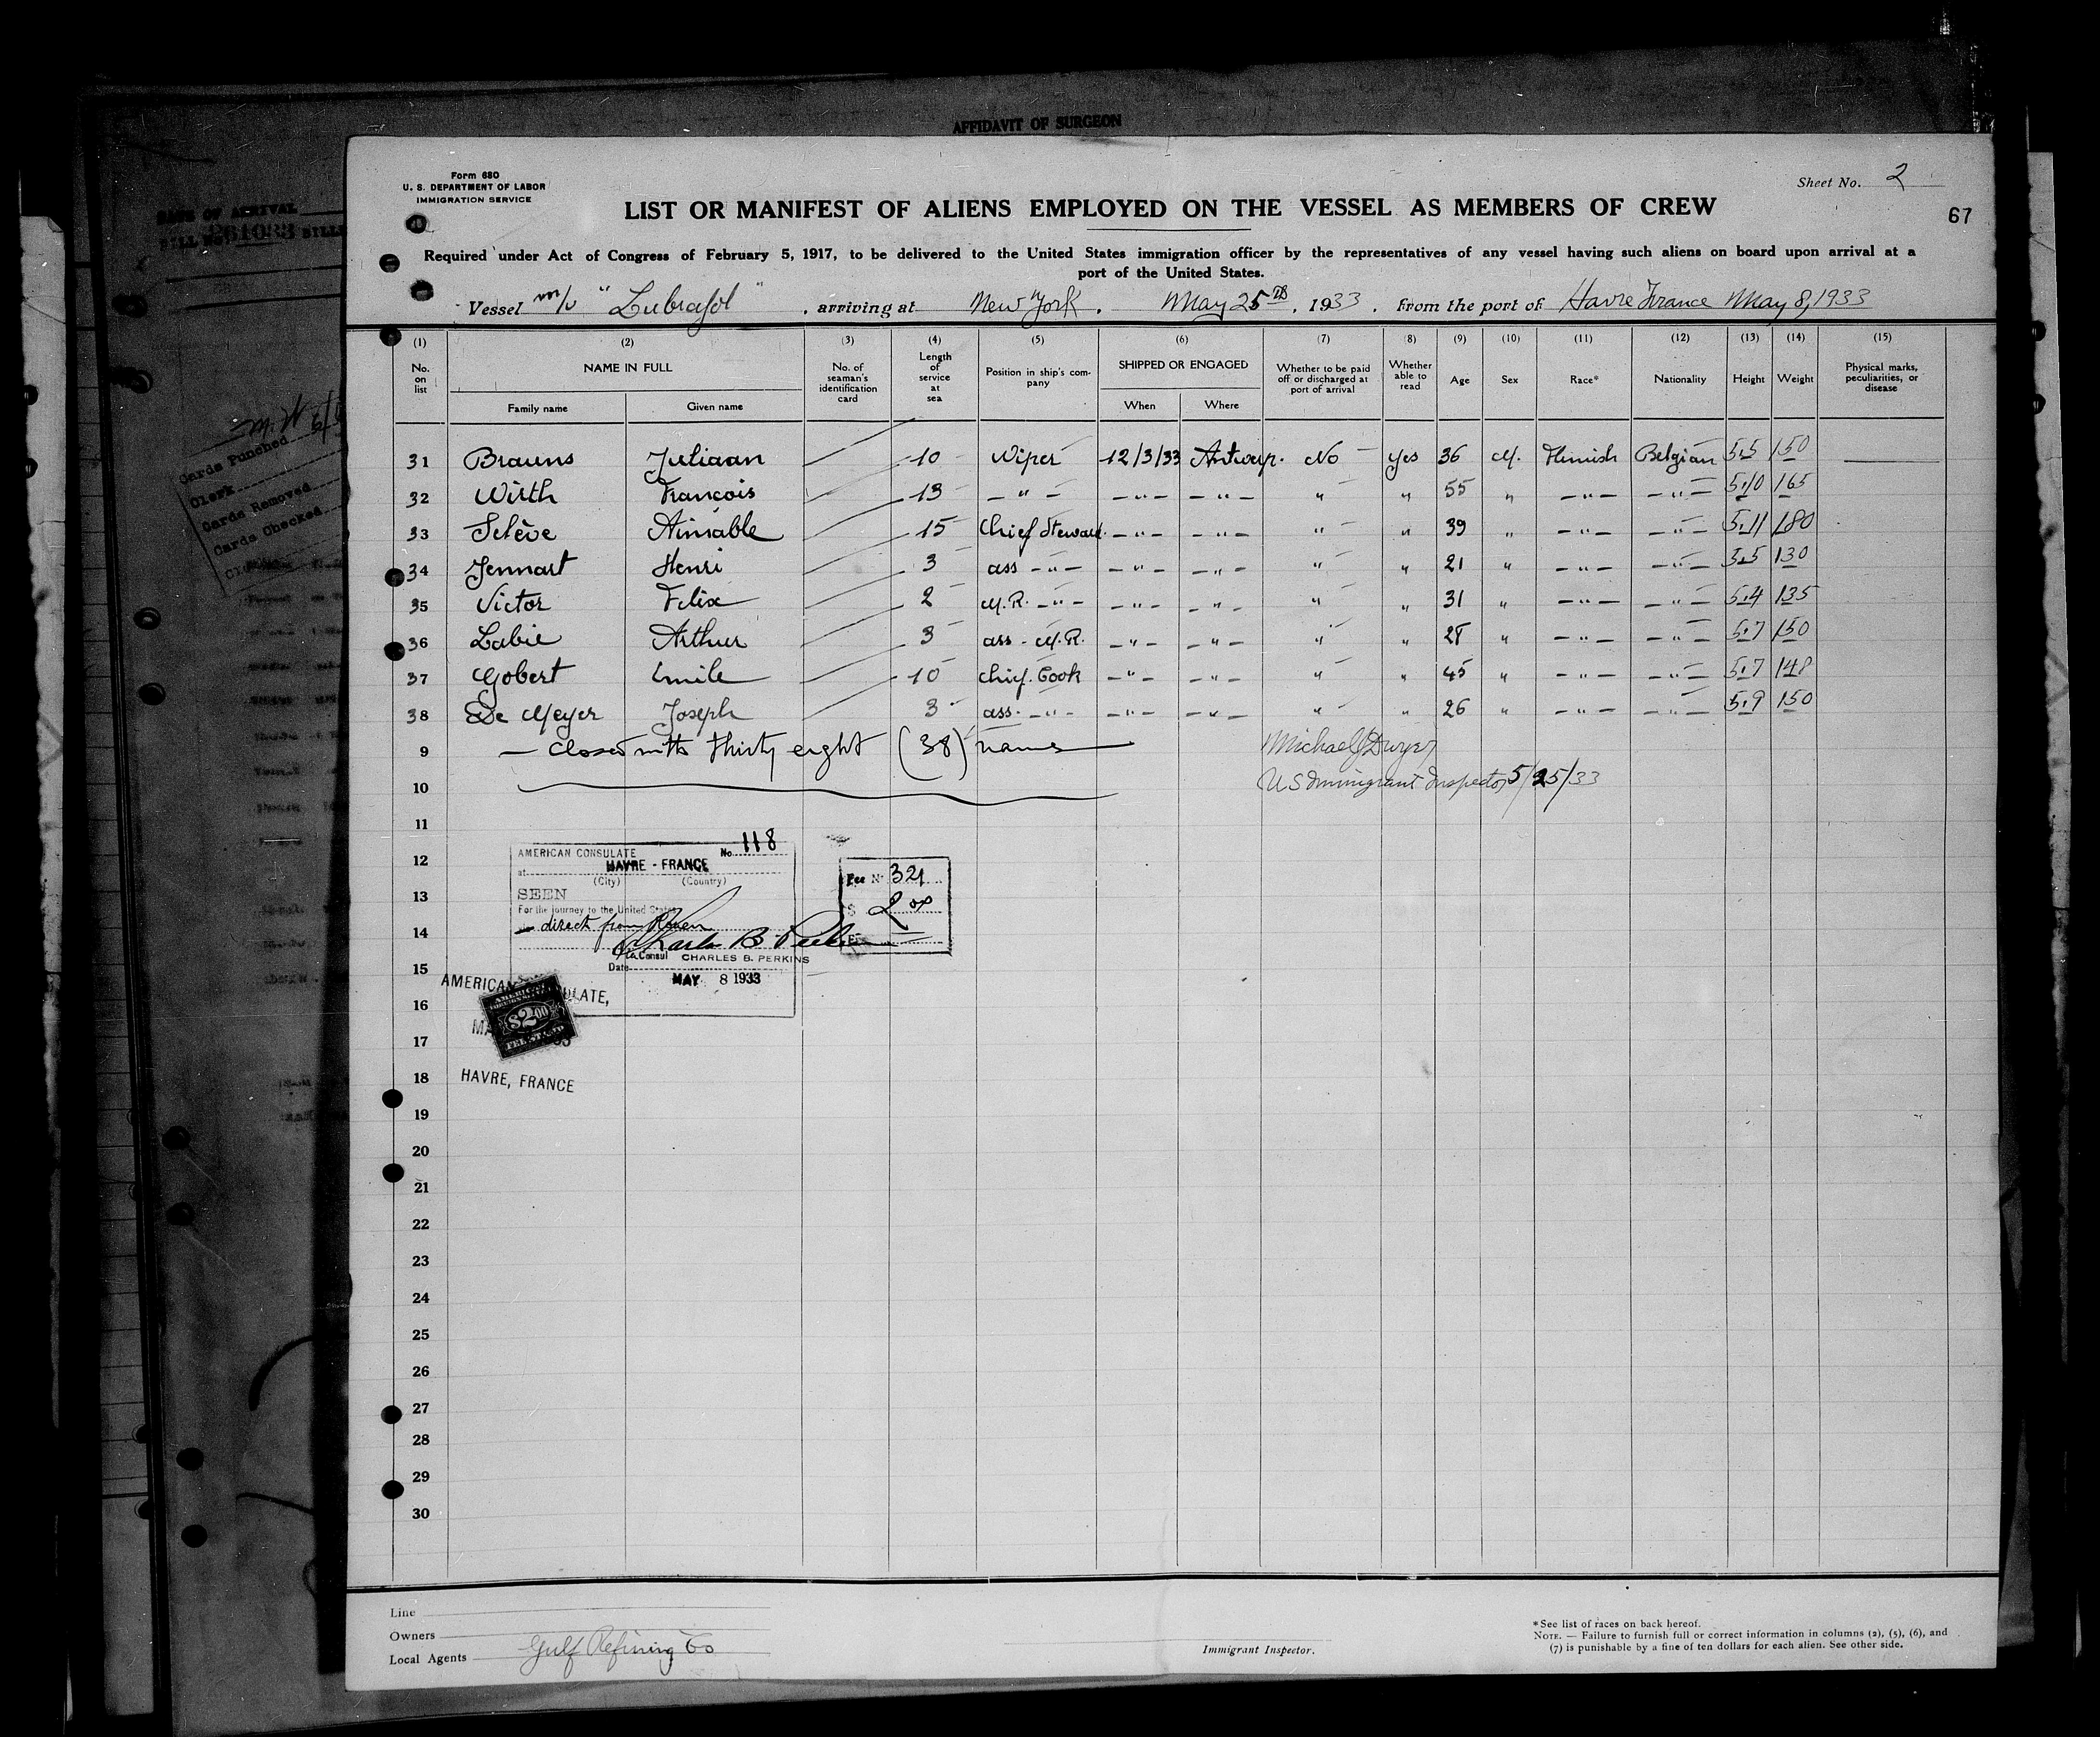 AFFIDAVIT OF SURGEON
Form 680
U. S. DEPARTMENT OF LABOR
IMMIGRATION SERVICE
Sheet No. 2
LIST OR MANIFEST OF ALIENS EMPLOYED ON THE VESSEL AS MEMBERS OF CREW
67
Required under Act of Congress of February 5, 1917, to be delivered to the United States immigration officer by the representatives of any vessel having such aliens on board upon arrival at a
port of the United States.
Vessel m/v "Lubrafol", arriving at New York. May 25th, 1933, from the port of Havre France May 8, 1933
(1) (2) (3) (4) (5) (6) (7) (8) (9) (10) (11) (12) (13) (14) (15)
No. on list NAME IN FULL No. of seaman's identification card Length of service at sea Position in ship's company SHIPPED OR ENGAGED Whether to be paid off or discharged at port of arrival Whether able to read Age Sex Race* Nationality Height Weight Physical marks, peculiarities, or disease
Family name Given name When Where
31 Brauns Juliaan 10 Wiper 12/3/33 Antwerp. No yes 36 M. Flemish Belgian 5.5 150
32 Wirth François 13 " " " " " 55 " " " 5.10 165
33 Selève Aimable 15 Chief Steward " " " " 39 " " " 5.11 180
34 Jennart Henri 3 ass " " " " " 21 " " " 5.5 130
35 Victor Felix 2 M.R. " " " " " 31 " " " 5.4 135
36 Labie Arthur 3 ass - M.R. " " " " 28 " " " 5.7 150
37 Gobert Emile 10 Chief. Cook " " " " 45 " " " 5.7 148
38 De Meyer Joseph 3 ass. " " " " " 26 " " " 5.9 150
9 — Closed with thirty eight (38) names — Michael J Dwyer
10 US Immigrant Inspector 5/25/33
11
12
13
14
15
16
17
18
19
20
21
22
23
24
24
25
26
27
28
29
30
AMERICAN CONSULATE No. 118
at HAVRE - FRANCE
(City) (Country)
SEEN
For the journey to the United States
direct from Rouen
Charles B. Perkins
Consul CHARLES B. PERKINS
Date MAY 8 1933
Fee No 321
$ 2.00
AMERICAN CONSULATE,
HAVRE, FRANCE
$2.00
Line
Owners
Local Agents Gulf Refining Co
Immigrant Inspector.
*See list of races on back hereof.
NOTE. — Failure to furnish full or correct information in columns (2), (5), (6), and
(7) is punishable by a fine of ten dollars for each alien. See other side.
Cards Punched
Clerk
Cards Removed
Cards Checked